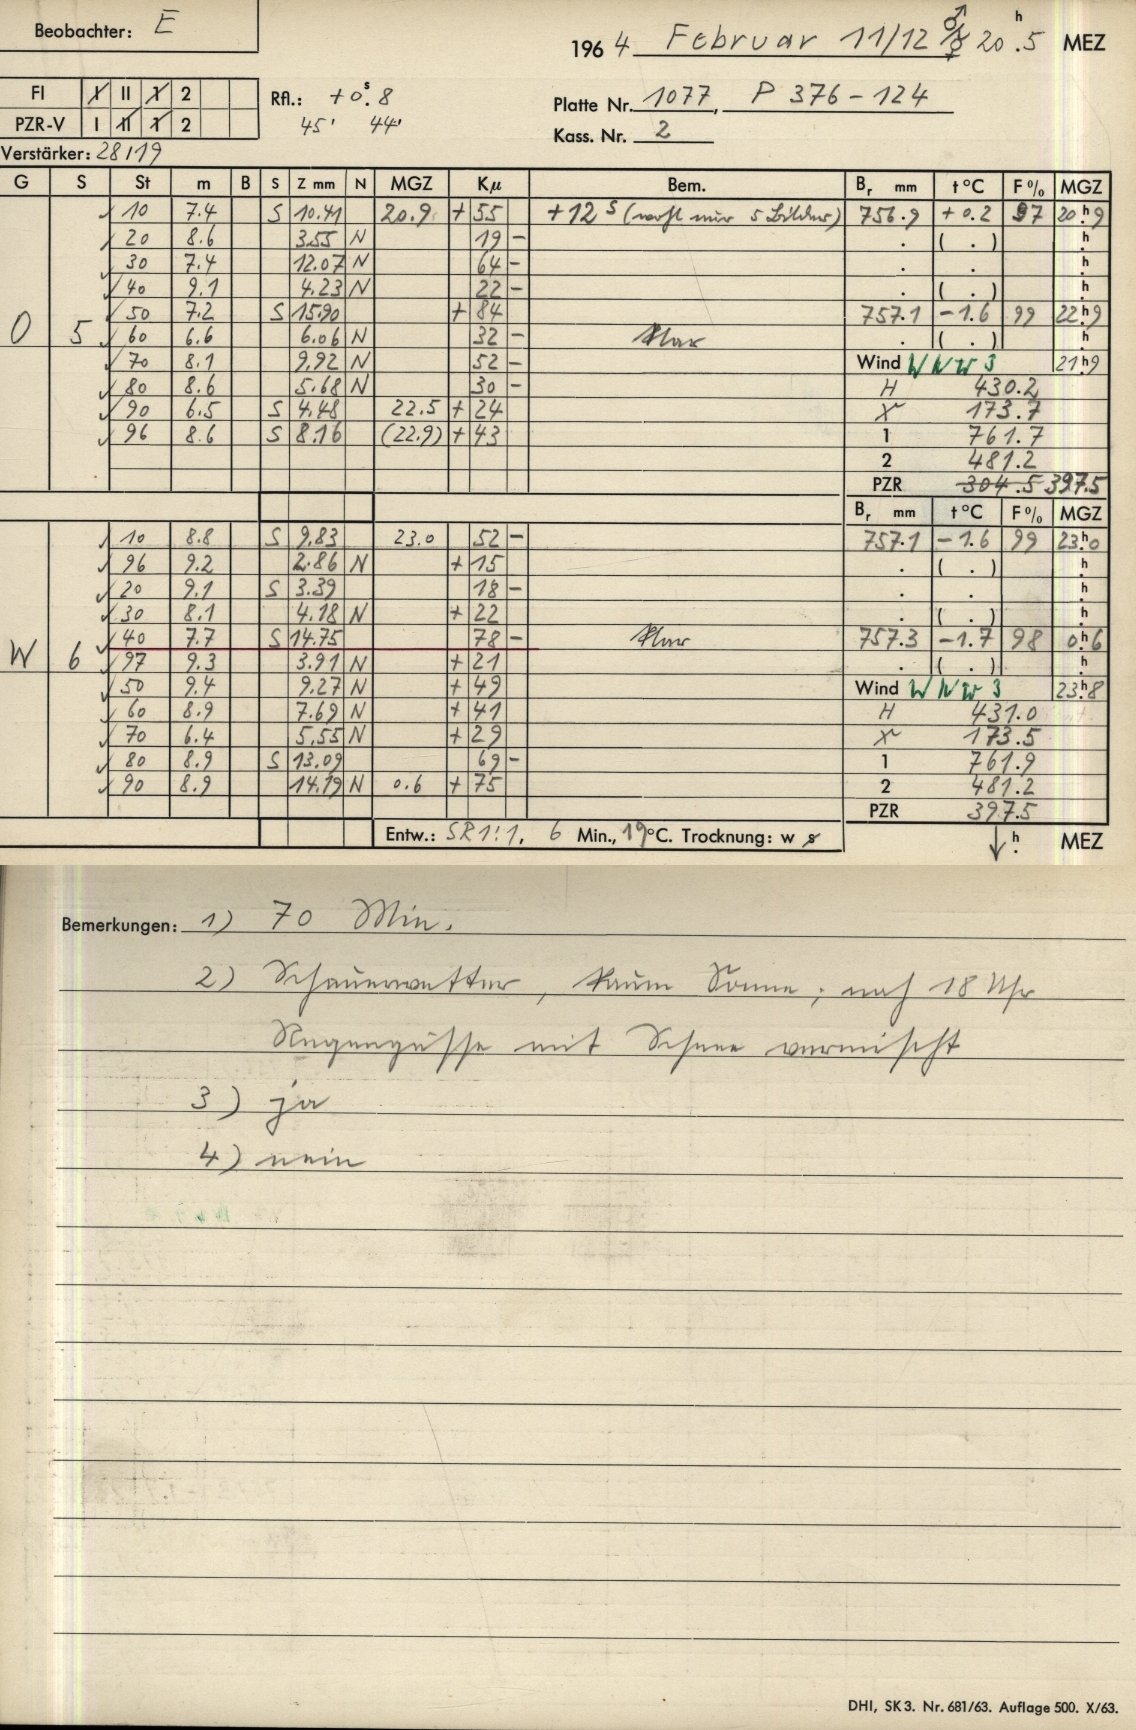 Beobachter: E
1964 Februar 11/12 ♂/☿ 20 h. 5 MEZ
FI I II 1 2
Rfl.: +0 s. 8
Platte Nr. 1077, P 376-124
PZR-V I II 1 2
45' 44'
Kass. Nr. 2
Verstärker: 28/19
G S St m B S Z mm N MGZ Kµ Bem. Br mm t °C F % MGZ
10 7.4 S 10.41 20.9 + 55 +12 s (wohl nur 5 Bilder) 756.9 +0.2 97 20 h 9
20 8.6 3.55 N 19 - . ( . ) h .
30 7.4 12.07 N 64 - . . h .
40 9.1 4.23 N 22 - . ( . ) h .
50 7.2 S 15.90 + 84 757.1 -1.6 99 22 h 9
O 5 60 6.6 6.06 N 32 - klar . ( . ) h .
70 8.1 9.92 N 52 - Wind WNW 3 21 h 9
80 8.6 5.68 N 30 - H 430.2
90 6.5 S 4.48 22.5 + 24 X 173.7
96 8.6 S 8.16 (22.9) + 43 1 761.7
2 481.2
PZR 304.5 397.5
Br mm t °C F % MGZ
10 8.8 S 9.83 23.0 52 - 757.1 -1.6 99 23 h 0
96 9.2 2.86 N + 15 . ( . ) h .
20 9.1 S 3.39 18 - . . h .
30 8.1 4.18 N + 22 . ( . ) h .
40 7.7 S 14.75 78 - klar 757.3 -1.7 98 0 h 6
W 6 97 9.3 3.91 N + 21 . ( . ) h .
50 9.4 9.27 N + 49 Wind WNW 3 23 h 8
60 8.9 7.69 N + 41 H 431.0
70 6.4 5.55 N + 29 X 173.5
80 8.9 S 13.09 69 - 1 761.9
90 8.9 14.19 N 0.6 + 75 2 481.2
PZR 397.5
Entw.: SR 1:1, 6 Min., 19 °C. Trocknung: w s
↓ h . MEZ
Bemerkungen: 1) 70 Min.
2) Schauerwetter, kaum Sonne; nach 18 Uhr
Regengüsse mit Schnee vermischt
3) ja
4) nein
DHI, SK3. Nr. 681/63. Auflage 500. X/63.